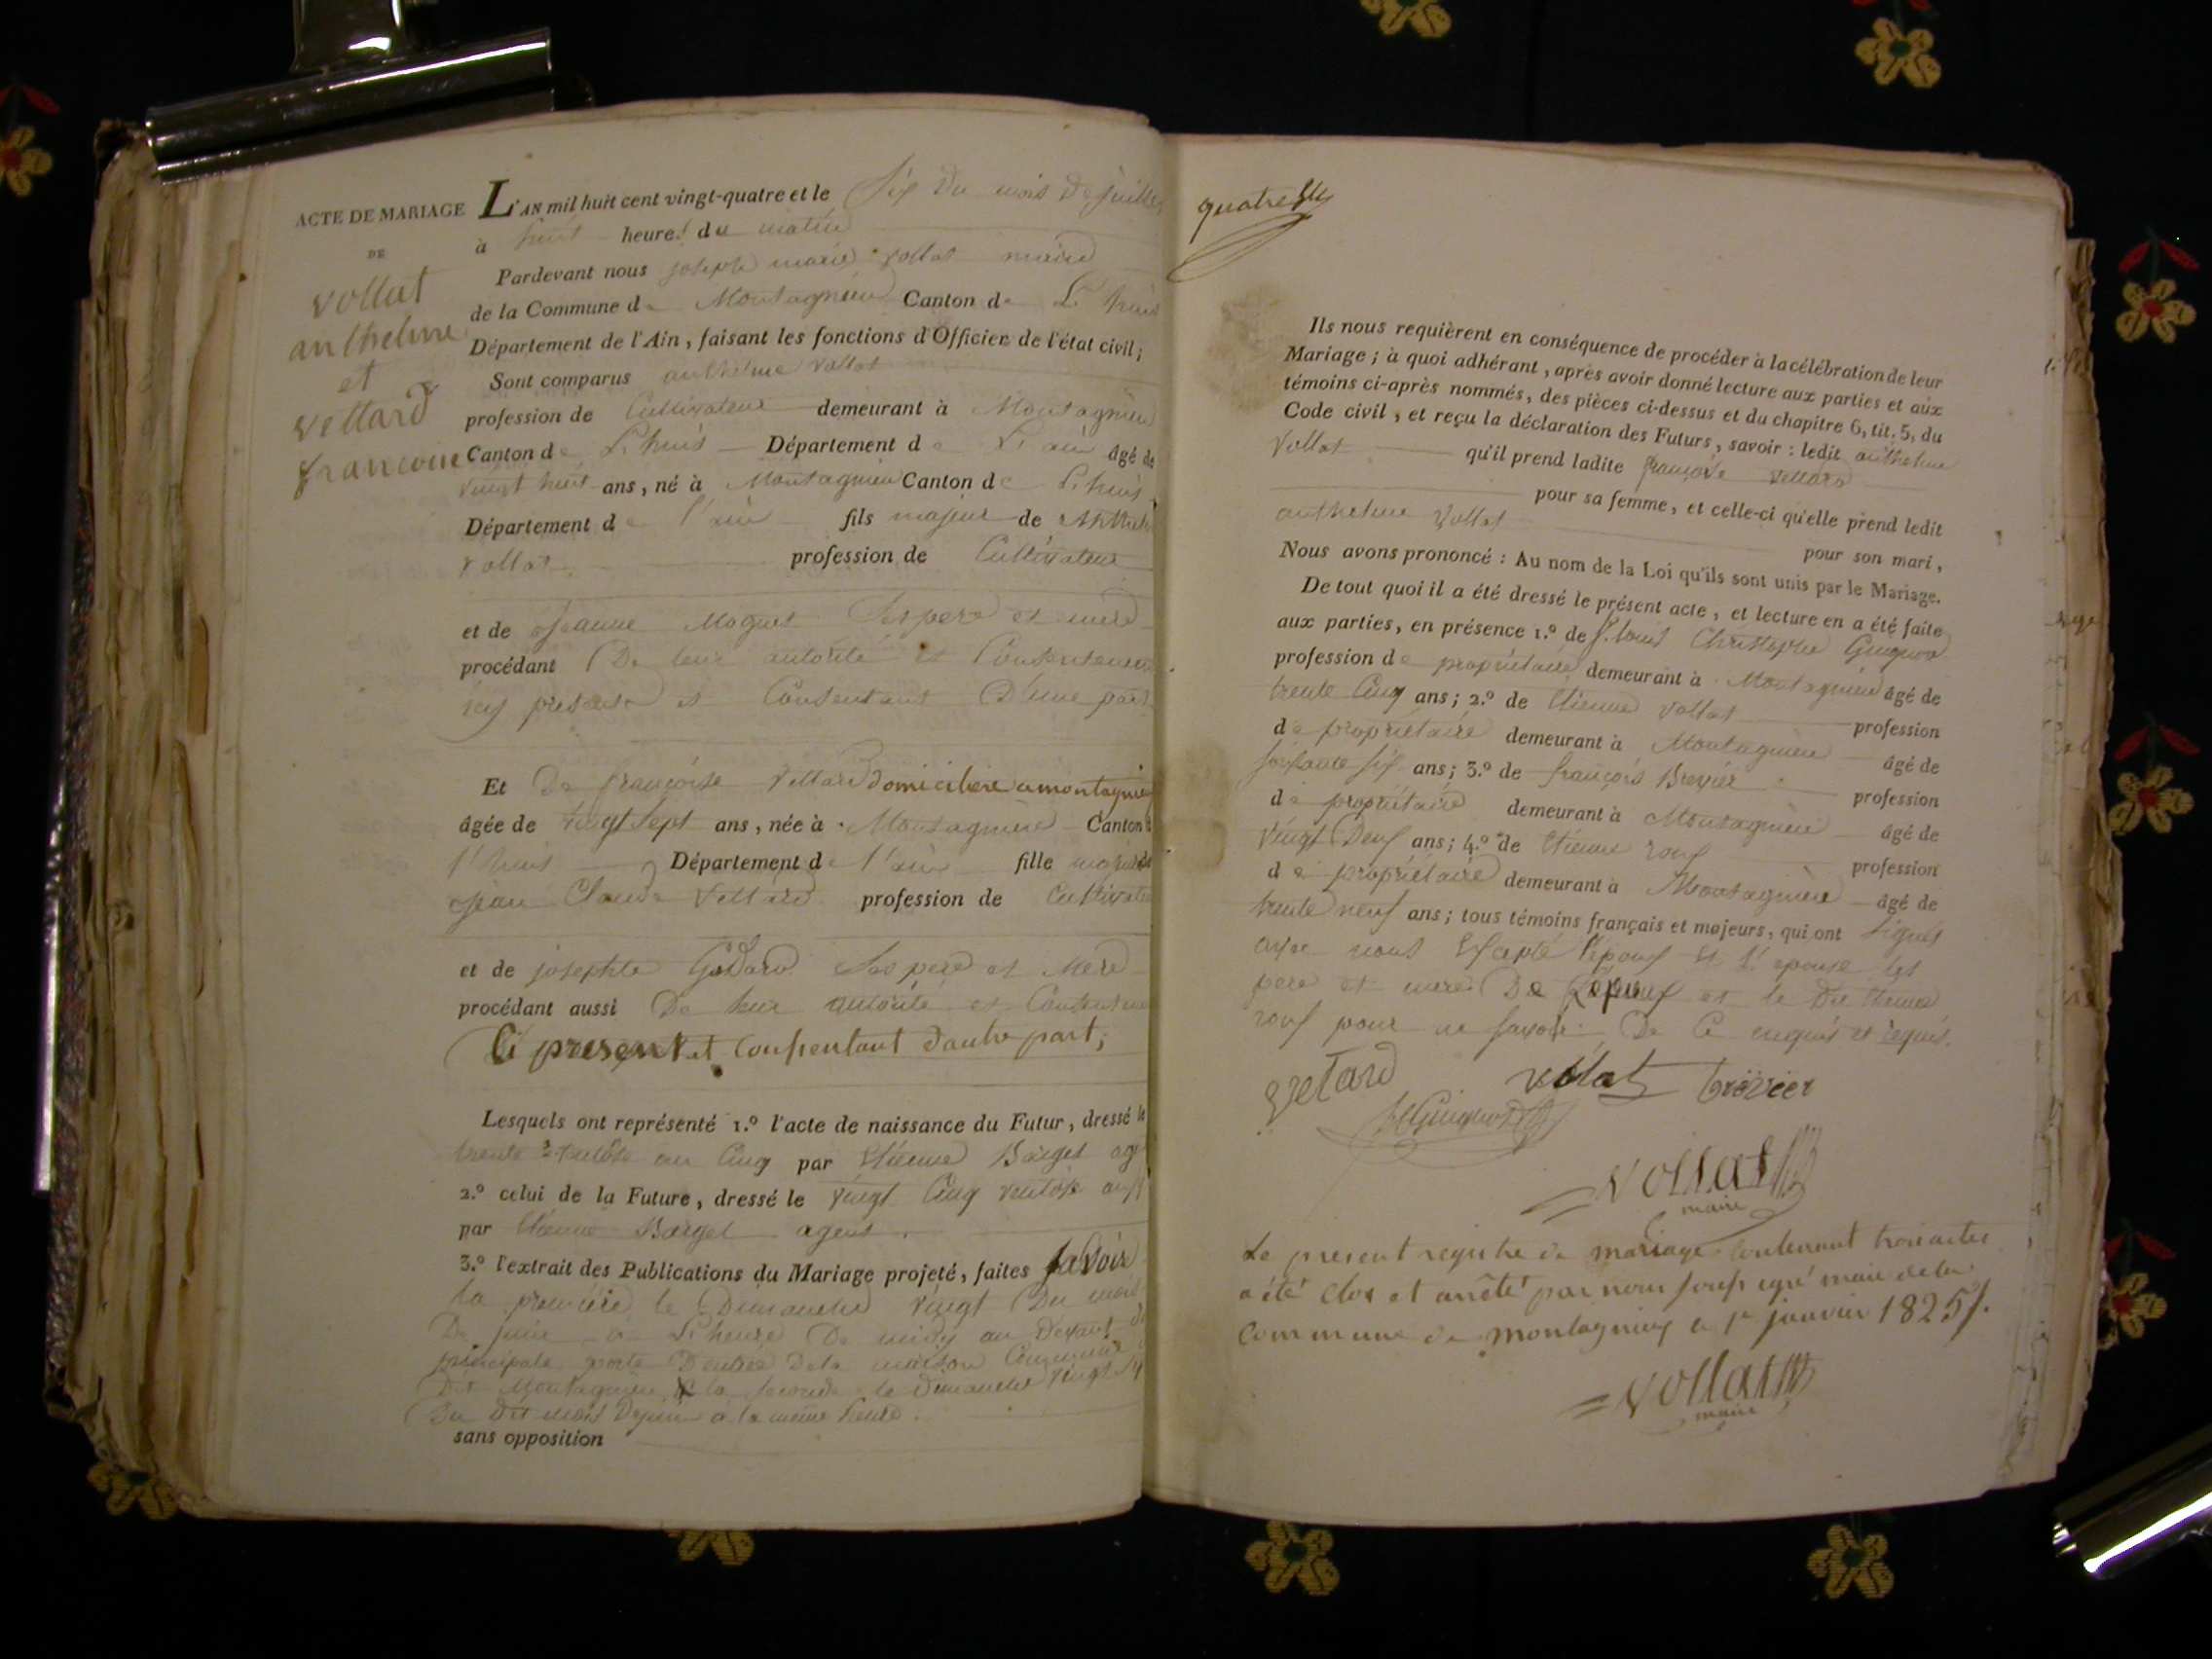 ACTE DE MARIAGE
DE
vollat
anthelme
et
vettard
francoise
L'AN mil huit cent vingt-quatre et le Six Du mois De juillet
à huit heures du matin
Pardevant nous joseph marie vollat maire
de la Commune de Montagnieu Canton de L'huis
Département de l'Ain, faisant les fonctions d'Officier de l'état civil;
Sont comparus anthelme vollat
profession de Cultivateur demeurant à Montagnieu
Canton de L'huis Département de L'ain âgé de
vingt huit ans, né à Montagnieu Canton de L'huis
Département de l'ain fils majeur de Anthel
vollat profession de Cultivateur
et de jeanne Moguet Ses pere et mere
procédant De leur autorité et Consentement
icy present et Consentant D'une part
Et De françoise Vettard domicilieé a montagnieu
âgée de vingt Sept ans, née à Montagnieu Canton
l'huis Département de l'ain fille majeure de
jean Claude Vettard profession de Cultivateu
et de josephte Godard Ses pere et Mere
procédant aussi De leur autorité et Consenteme
Ci present et Consentant d'autre part;
Lesquels ont représenté 1.º l'acte de naissance du Futur, dressé le
trente an Cinq par Etienne Barget ag
2.º celui de la Future, dressé le vingt Cinq ventose an
par Etienne Barget agent.
3.º l'extrait des Publications du Mariage projeté, faites savoir
la premiere le Dimanche vingt Du mois
De juin à L'heure De midy au Devant de
principale porte D'entrée Dela maison Commune
Dit Montagnieu & la Seconde le dimanche vingt
Du dit mois De juin à la meme heure.
sans opposition
quatre
Ils nous requièrent en conséquence de procéder à la célébration de leur
Mariage; à quoi adhérant, après avoir donné lecture aux parties et aux
témoins ci-après nommés, des pièces ci-dessus et du chapitre 6, tit. 5, du
Code civil, et reçu la déclaration des Futurs, savoir: ledit anthelme
Vollat qu'il prend ladite françoise vettard
pour sa femme, et celle-ci qu'elle prend ledit
anthelme Vollat pour son mari,
Nous avons prononcé: Au nom de la Loi qu'ils sont unis par le Mariage.
De tout quoi il a été dressé le présent acte, et lecture en a été faite
aux parties, en présence 1.º de Louis Christophe Guignod
profession de propriétaire demeurant à Montagnieu âgé de
trente Cinq ans; 2.º de Etienne vollat profession
de propriétaire demeurant à Montagnieu âgé de
soixante six ans; 3.º de françois Brevier profession
de propriétaire demeurant à Montagnieu âgé de
vingt Deux ans; 4.º de Etienne roux profession
de propriétaire demeurant à Montagnieu âgé de
trente neuf ans; tous témoins français et majeurs, qui ont Signés
avec nous Excepté l'epoux et l'epouse les
pere et mere De L'epoux et le Dit Etienne
roux pour ne savoir De Ce enquis et requis.
vetard vollat brevier
Guignod
vollat
maire
Le present registre de mariage contenant trois actes
a été clos et arrêté par nous soussigné maire de la
Commune de montagnieu le 1er janvier 1825.
vollat
maire